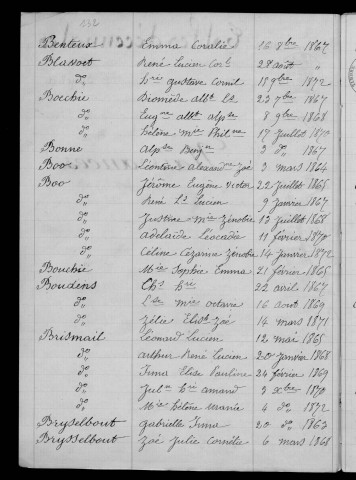 232
Benteux Emma Coralie 16 8bre 1867
Blavoet René Lucien Cor.s 28 août "
do Hri Gustave Cornil 18 9bre 1872
Boeckie Diomède albt Ls 23 7bre 1867
do Eugne albt alpse 8 9bre 1868
do Hélène Mie Philne 17 Juillet 1870
Bonne Alpse Benjn 3 do 1867
Boo Léontine Alexandne Zoé 3 mars 1864
Boo Jérôme Eugène Victor 22 Juillet 1865
do René Ls Lucien 9 Janvier 1867
do Justine Mie Zénobie 12 Juillet 1868
do Adelaïde Léocadie 11 février 1870
do Céline Cezarine Zénobie 14 Janvier 1872
Bouchie Mie Sophie Emma 21 février 1865
Boudens Chs Hri 22 avril 1867
do Lse Mie octavie 16 août 1869
do Zélie Elisth Zoé 14 mars 1871
Brismail Léonard Lucien 12 mai 1865
do arthur René Lucien 20 Janvier 1868
do Irma Elise Pauline 24 février 1869
do Juln Hri amand 3 xbre 1870
do Mie Hélène Marie 4 do 1872
Bryselbout gabrielle Irma 20 do 1863
Brysselbout Zoé Julie Cornélie 6 mars 1868